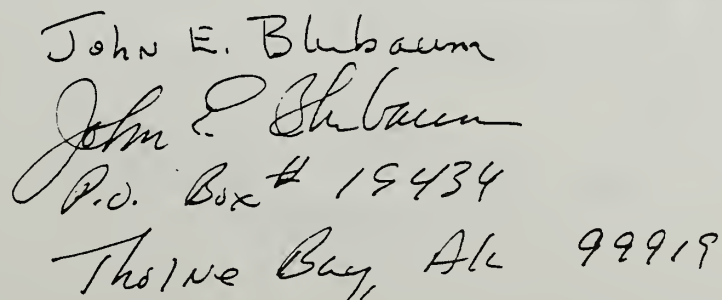 John E. Blubaum
John E. Blubaum
P.O. Box # 19434
Thorne Bay, Ak 99919